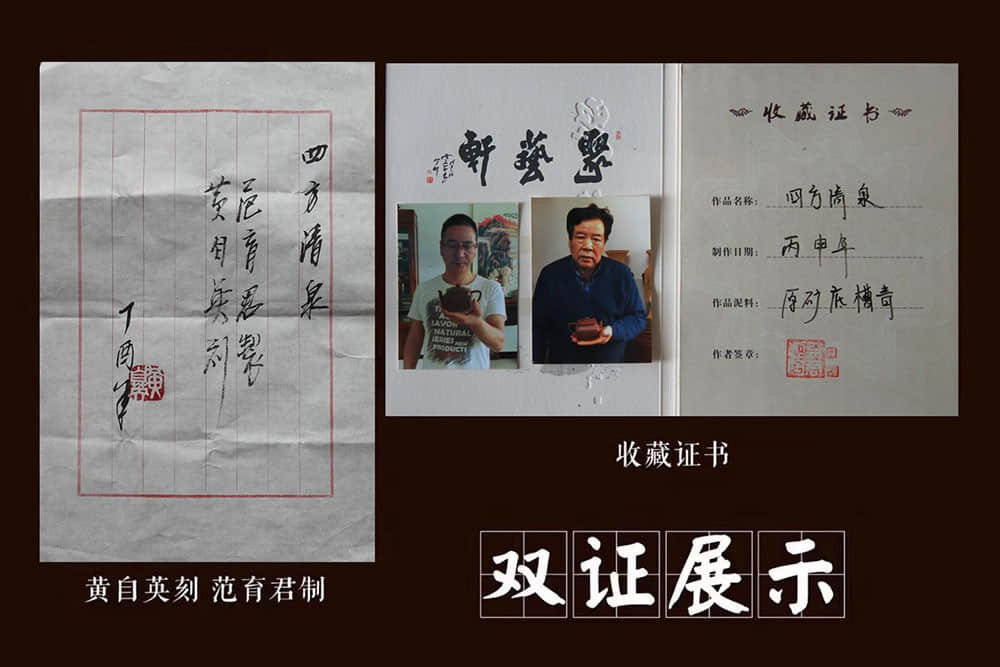 四方清泉
范育君製
黄自英刻
丁酉年
聚藝軒
收藏证书
作品名称：四方清泉
制作日期：丙申年
作品泥料：原矿底槽青
作者签章：
THE
SAVOR
NATURAL
SERIES NEW
PRODUCTS
收藏证书
黄自英刻 范育君制
双证展示